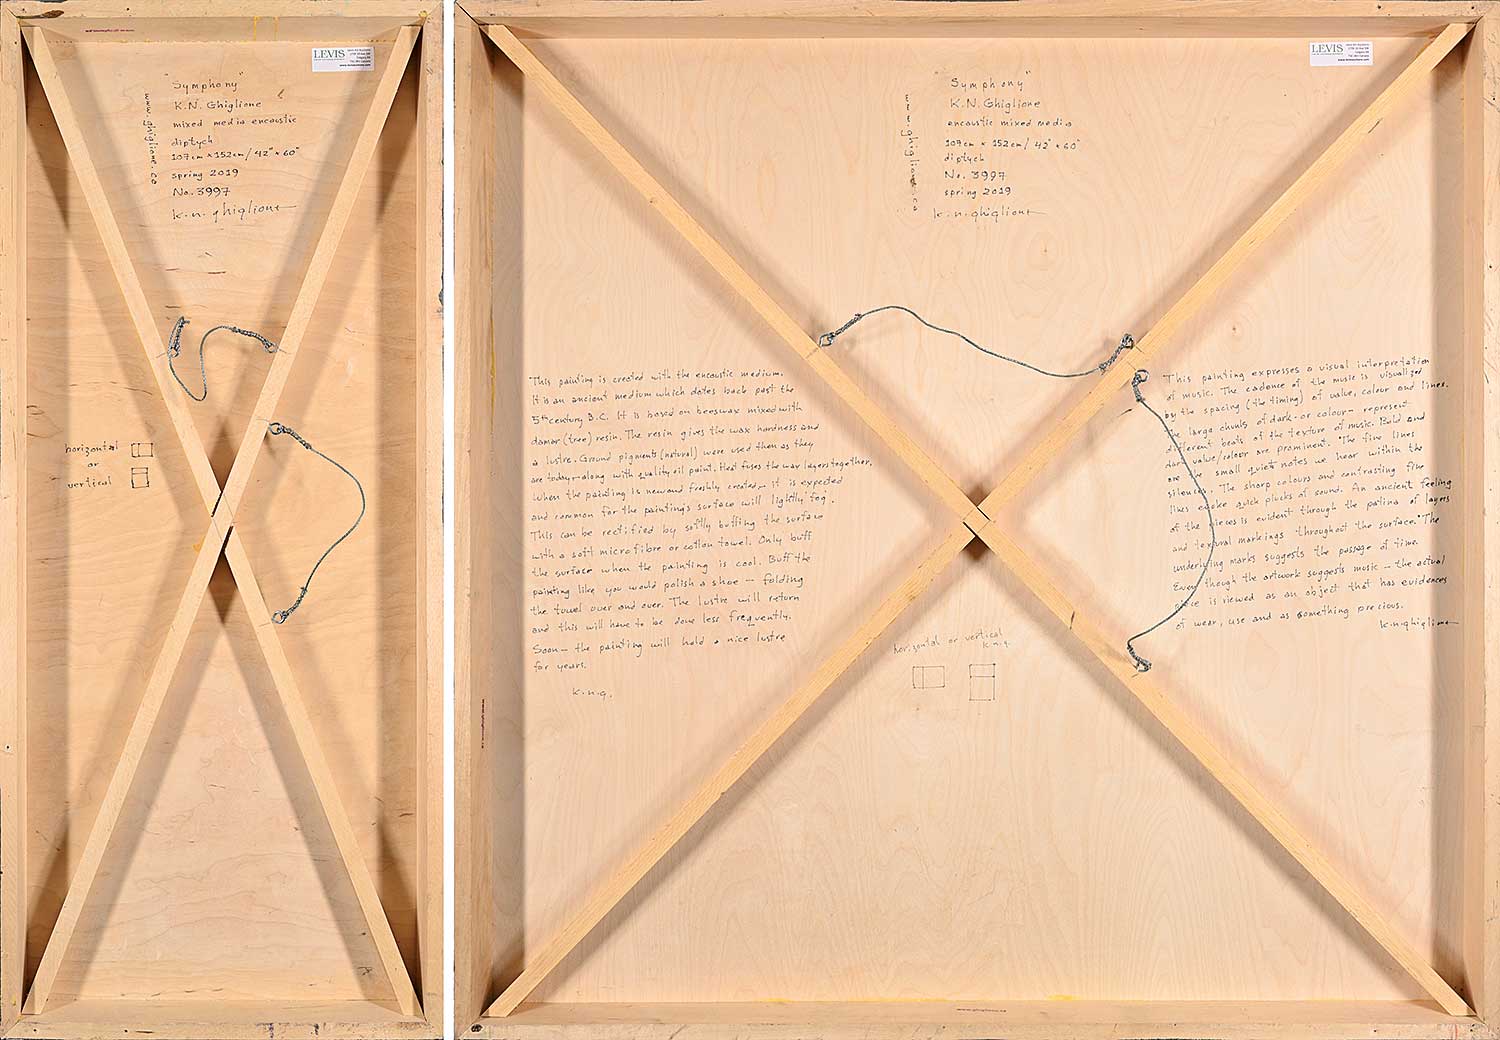 LEVIS
"Symphony"
K.N. Ghiglione
mixed media encaustic
diptych
107cm × 152cm / 42" × 60"
spring 2019
No. 3997
k.n. ghiglione
www.ghiglione.ca
horizontal
or
vertical
LEVIS
"Symphony"
K.N. Ghiglione
encaustic mixed media
107cm × 152cm / 42" × 60"
diptych
No. 3997
spring 2019
k.n. ghiglione
www.ghiglione.ca
This painting is created with the encaustic medium.
It is an ancient medium which dates back past the
5th century B.C. It is based on beeswax mixed with
damar (tree) resin. The resin gives the wax hardness and
a lustre. Ground pigments (natural) were used then as they
are today-along with quality oil paint. Heat fuses the wax layers together.
When the painting is new and freshly created - it is expected
and common for the painting's surface will lightly 'fog'.
This can be rectified by softly buffing the surface
with a soft microfibre or cotton towel. Only buff
the surface when the painting is cool. Buff the
painting like you would polish a shoe - folding
the towel over and over. The lustre will return
and this will have to be done less frequently.
Soon - the painting will hold a nice lustre
for years.
k.n.g.
This painting expresses a visual interpretation
of music. The cadence of the music is visualized
by the spacing (the timing) of value, colour and lines.
The large chunks of dark - or colour - represent
different beats of the texture of music. Bold and
dark value/colour are prominent. The fine lines
are the small quiet notes we hear within the
silences. The sharp colours and contrasting fine
lines evoke quick plucks of sound. An ancient feeling
of the pieces is evident through the patina of layers
and textural markings throughout the surface. The
underlying marks suggests the passage of time.
Even though the artwork suggests music - the actual
piece is viewed as an object that has evidences
of wear, use and as something precious.
k.n.ghiglione
horizontal or vertical
k.n.g.